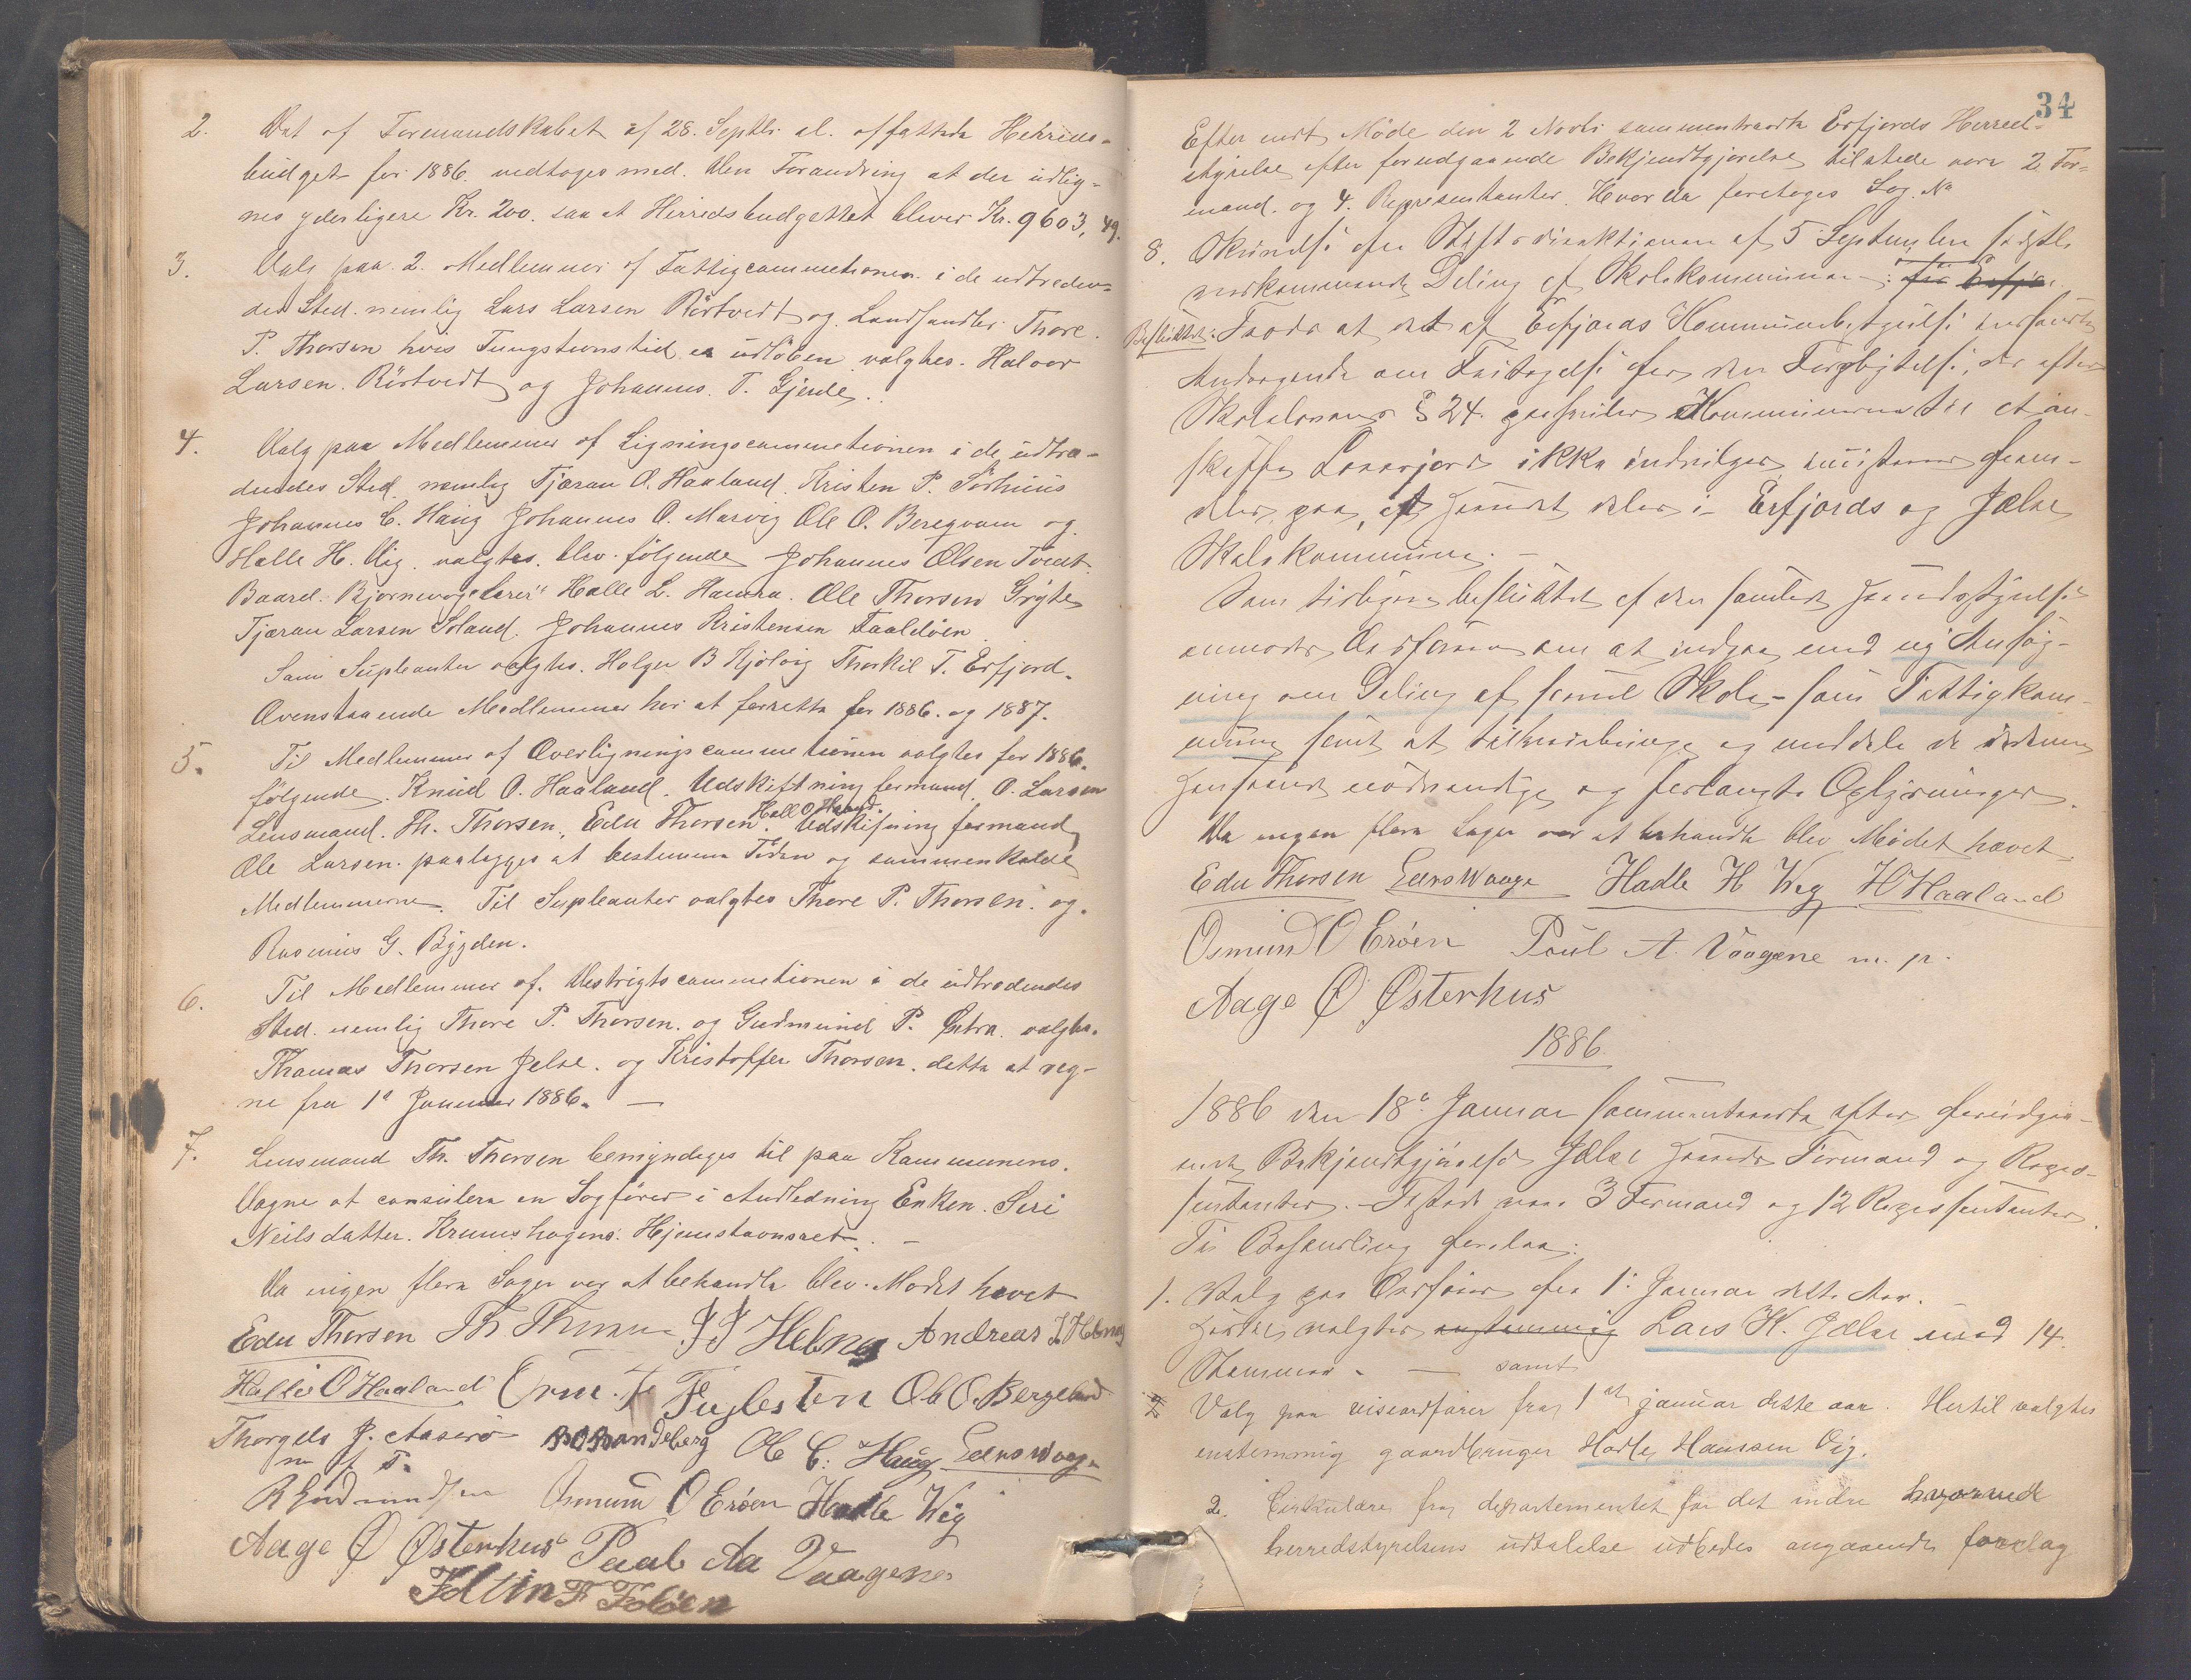 2. Det af Formandskabet af 28. Septbr. al. affattede Herreds-
budget for 1886. vedtoges med den Forandring at der udlig-
nes yderligere Kr. 200. saa at Herredsbudgettet bliver Kr. 9603,49.
3. Valg paa 2. Medlemmer af Fattigcommetionen i de udtræden-
des Sted. nemlig Lars Larsen Rörtvedt og Landhandler Thore
P. Thorsen hvis Fungtionstid er udløben valgtes. Halvor
Larsen. Rörtvedt og Johannes. T. Gjerde.
4. Valg paa Medlemmer af Ligningscommetionen i de udtræ-
dendes Sted. nemlig Tjæran O. Haaland. Kristen P. Sørhuus
Johannes C. Haug Johannes O. Marvig Ole O. Beregvam og
Halle H. Vig. valgtes. blev følgende Johannes Olsen Tvedt.
Baard. Halle L. Hamra. Ole Thorsen
Tjæran Larsen Soland. Johannes Kristensen Faaldöen.
Som Supleanter valgtes. Holger B Kjölvig Thorkil T. Erfjord.
Ovenstaaende Medlemmer har at forrette for 1886. og 1887.
5. Til Medlemmer af Overligningscommetionen valgtes for 1886.
følgende. Knud O. Haaland. Udskiftningformand. O. Larsen
Hall O Haaland.
Lensmand. Th. Thorsen., Edu Thorsen. Udskifning formand
Ole Larsen. paalegges at bestemme Tiden og sammenkalde
Medlemmerne. Til Supleanter valgtes Thore P. Thorsen. og.
Rasmus G. Bygden.
6. Til Medlemmer af. Destrigtscommetionen i de udtrædendes
Sted. nemlig Thore P. Thorsen. og Gudmund P. valgtes.
Thomas Thorsen Jelse. og Kristoffer Thorsen. dette at reg-
ne fra 1ª Januar 1886. —
7. Lensmand Th. Thorsen bemyndiges til paa Kommunens.
Vegne at consulere en Sagfører i Anledning Enken. Siri
Neilsdatter. Krunshagens. Hjemstavnsret. —
Da ingen flere Sager var at behandle blev. Mødet hævet
Edu Thorsen Th Thorsen J J Hebnes Andreas J. Hebnes
Halle O Haaland Orm. Fuglesten Ole O. Bergeland
Thorgils J. Aaserö B O Brandeberg Ole C. Haug Leers Waage
m p. T.
R Gudmundsen Osmund O Eröen Hadle Wig
Aage Ø Østerhus Paal Aa Vaagene
Foltin F Foløen
34
Efter endt Møde den 2 Novbr sammentraadte Erfjords Herred-
styrelse efter forudgaaende Bekjendtgjørelse tilstede vare 2 For-
mænd. og 4. Representanter. Hvor da foretoges Sag. No
8. Skrivelse fra Stiftsdirektionen af 5 September sidstl.
vedkommende Deling af Skolekommunen: for Erfjo
Besluttet: Trods at det af Erfjords Kommunebestyrelse indsendte
Andragende om Fritagelse for den Forpligtelse, der efter
Skolelovens § 24. paahviler Kommunerne til at an-
skaffe Lærerjord ikke indvilges frem-
deles paa, at Herredet deles i Erfjords og Jelse
Skolekommune. —
Som tidligere besluttet af den samlede Herredsstyrelse
anmodes Ordføreren om at indgaa med ny Ansøg-
ning om Deling af saavel Skole- som Fattigkom-
mune samt at tilveiebringe og meddele de i denne
Henseende nødvendige og forlangte Oplysninger.
Da ingen flere Sager var at behandle blev Mødet hævet.
Edu Thorsen Leers Waage Hadle H Wig H Haaland
Osmund O Eröen Poul A. Vaagene m. p.
Aage Ø Østerhus
1886
1886 den 18de Januar sammentraadte efter forudgaa-
ende Bekjendtgjørelse Jelse Herreds Formænd og Repræ-
sentanter. — Tilstede var 3 Formænd og 12 Repræsentanter.
Til Behandling forelaa:
1. Valg paa Ordfører fra 1. Januar dette Aar.
Hertil valgtes enstemmig Lars K. Jelse med 14.
Stemmer. — samt
2 Valg paa viseordfører fra 1ste januar dette aar. Hertil valgtes
enstemmig gaardbruger Hadle Hanssen Vig.
2. Cirkulære fra departementet for det indre hvorved
herredstyrelsens udtalelse udbedes angaaende forslag